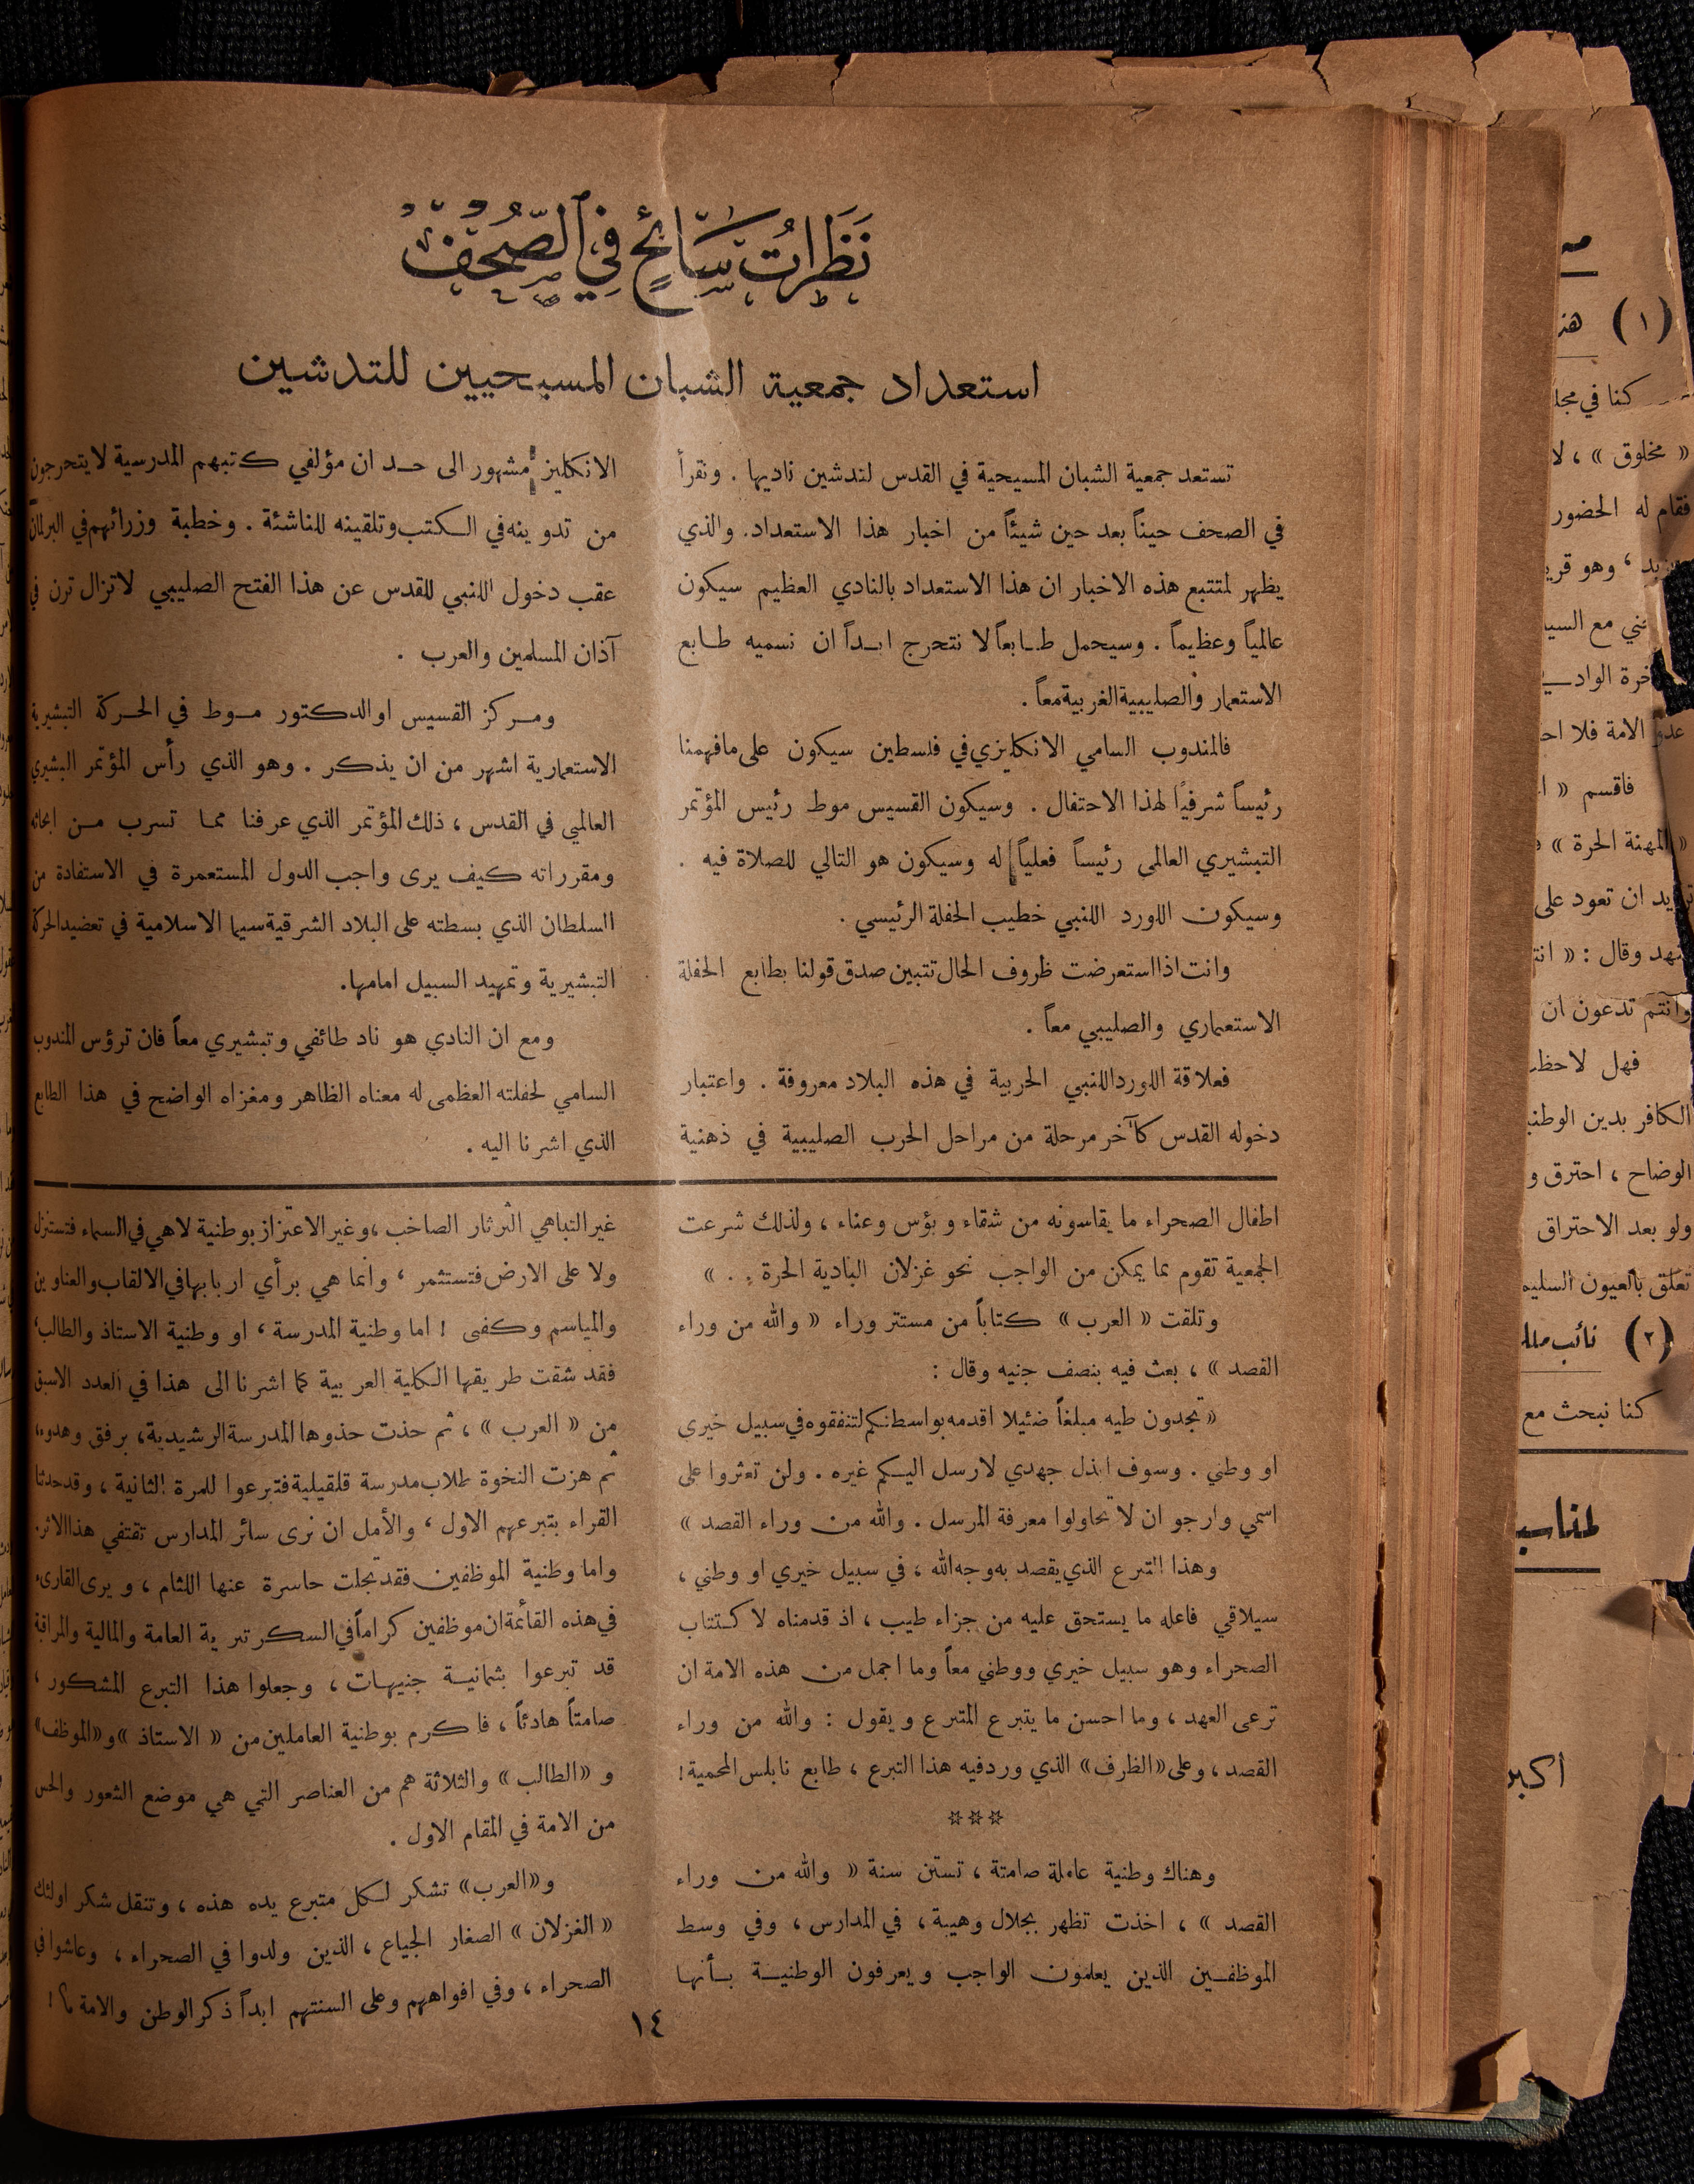 نَظَرَاتُ سَائِحٍ فِي الصُّحُفِ
استعداد جمعية الشبان المسيحيين للتدشين
تستعد جمعية الشبان المسيحية في القدس لتدشين ناديها . ونقرأ
في الصحف حيناً بعد حين شيئاً من اخبار هذا الاستعداد. والذي
يظهر لمتتبع هذه الاخبار ان هذا الاستعداد بالنادي العظيم سيكون
عالمياً وعظيماً . وسيحمل طابعاً لا نتحرج ابداً ان نسميه طابع
الاستعمار والصليبية الغربية معاً .
فالمندوب السامي الانكليزي في فلسطين سيكون على ما فهمنا
رئيساً شرفياً لهذا الاحتفال . وسيكون القسيس موط رئيس المؤتمر
التبشيري العالمي رئيساً فعلياً له وسيكون هو التالي للصلاة فيه .
وسيكون اللورد اللنبي خطيب الحفلة الرئيسي .
وانت اذا استعرضت ظروف الحال تتبين صدق قولنا بطابع الحفلة
الاستعماري والصليبي معاً .
فعلاقة اللورد اللنبي الحربية في هذه البلاد معروفة . واعتبار
دخوله القدس كآخر مرحلة من مراحل الحرب الصليبية في ذهنية
الانكليز مشهور الى حد ان مؤلفي كتبهم المدرسية لا يتحرجون
من تدوينه في الكتب وتلقينه للناشئة . وخطبة وزرائهم في البرلمان
عقب دخول اللنبي للقدس عن هذا الفتح الصليبي لا تزال ترن في
آذان المسلمين والعرب .
ومركز القسيس او الدكتور موط في الحركة التبشيرية
الاستعمارية اشهر من ان يذكر . وهو الذي رأس المؤتمر التبشيري
العالمي في القدس ، ذلك المؤتمر الذي عرفنا مما تسرب من ابحاثه
ومقرراته كيف يرى واجب الدول المستعمرة في الاستفادة من
السلطان الذي بسطته على البلاد الشرقية سيما الاسلامية في تعضيد الحركة
التبشيرية وتمهيد السبيل امامها.
ومع ان النادي هو ناد طائفي وتبشيري معاً فان ترؤس المندوب
السامي لحفلته العظمى له معناه الظاهر ومغزاه الواضح في هذا الطابع
الذي اشرنا اليه .
اطفال الصحراء ما يقاسونه من شقاء وبؤس وعناء ، ولذلك شرعت
الجمعية تقوم بما يمكن من الواجب نحو غزلان البادية الحرة . . »
وتلقت « العرب » كتاباً من مستتر وراء « والله من وراء
القصد » ، بعث فيه بنصف جنيه وقال :
« تجدون طيه مبلغاً ضئيلا اقدمه بواسطتكم لتنفقوه في سبيل خيري
او وطني . وسوف ابذل جهدي لارسل اليكم غيره . ولن تعثروا على
اسمي وارجو ان لا تحاولوا معرفة المرسل . والله من وراء القصد »
وهذا التبرع الذي يقصد به وجه الله ، في سبيل خيري او وطني ،
سيلاقي فاعله ما يستحق عليه من جزاء طيب ، اذ قدمناه لاكتتاب
الصحراء وهو سبيل خيري ووطني معاً وما اجمل من هذه الامة ان
ترعى العهد ، وما احسن ما يتبرع المتبرع ويقول : والله من وراء
القصد ، وعلى « الظرف » الذي ورد فيه هذا التبرع ، طابع نابلس المحمية !
***
وهناك وطنية عاملة صامتة ، تستن سنة « والله من وراء
القصد » ، اخذت تظهر بجلال وهيبة ، في المدارس ، وفي وسط
الموظفين الذين يعلمون الواجب ويعرفون الوطنية بأنها
غير التباهي الثرثار الصاخب ، وغير الاعتزاز بوطنية لا هي في السماء فتستنزل
ولا على الارض فتستثمر ، وانما هي برأي اربابها في الالقاب والعناوين
والمياسم وكفى ! اما وطنية المدرسة ، او وطنية الاستاذ والطالب ،
فقد شقت طريقها الكلية العربية كما اشرنا الى هذا في العدد الاسبق
من « العرب » ، ثم حذت حذوها المدرسة الرشيدية ، برفق وهدوء ،
ثم هزت النخوة طلاب مدرسة قلقيلية فتبرعوا للمرة الثانية ، وقد حدثنا
القراء بتبرعهم الاول ، والأمل ان نرى سائر المدارس تقتفي هذا الاثر .
واما وطنية الموظفين فقد تجلت حاسرة عنها اللثام ، ويرى القارىء
في هذه القائمة ان موظفين كراماً في السكرتيرية العامة والمالية والمراقبة
قد تبرعوا بثمانية جنيهات ، وجعلوا هذا التبرع المشكور ،
صامتاً هادئاً ، فاكرم بوطنية العاملين من « الاستاذ » و « الموظف »
و « الطالب » والثلاثة هم من العناصر التي هي موضع الشعور والحس
من الامة في المقام الاول .
و « العرب » تشكر لكل متبرع يده هذه ، وتنقل شكر اولئك
« الغزلان » الصغار الجياع ، الذين ولدوا في الصحراء ، وعاشوا في
الصحراء ، وفي افواههم وعلى السنتهم ابداً ذكر الوطن والامة
١٤
(١)
كنا في
« مخلوق » ، لا
فقام له الحضور
، وهو
مع
الامة فلا
فاقسم «
« المهنة الحرة »
ان تعود على
وقال : «
وانتم تدعون ان
فهل
الكافر بدين
الوضاح ، احترق و
ولو بعد الاحتراق
تعلق بالعيون
(٢) نائب
كنا نبحث مع